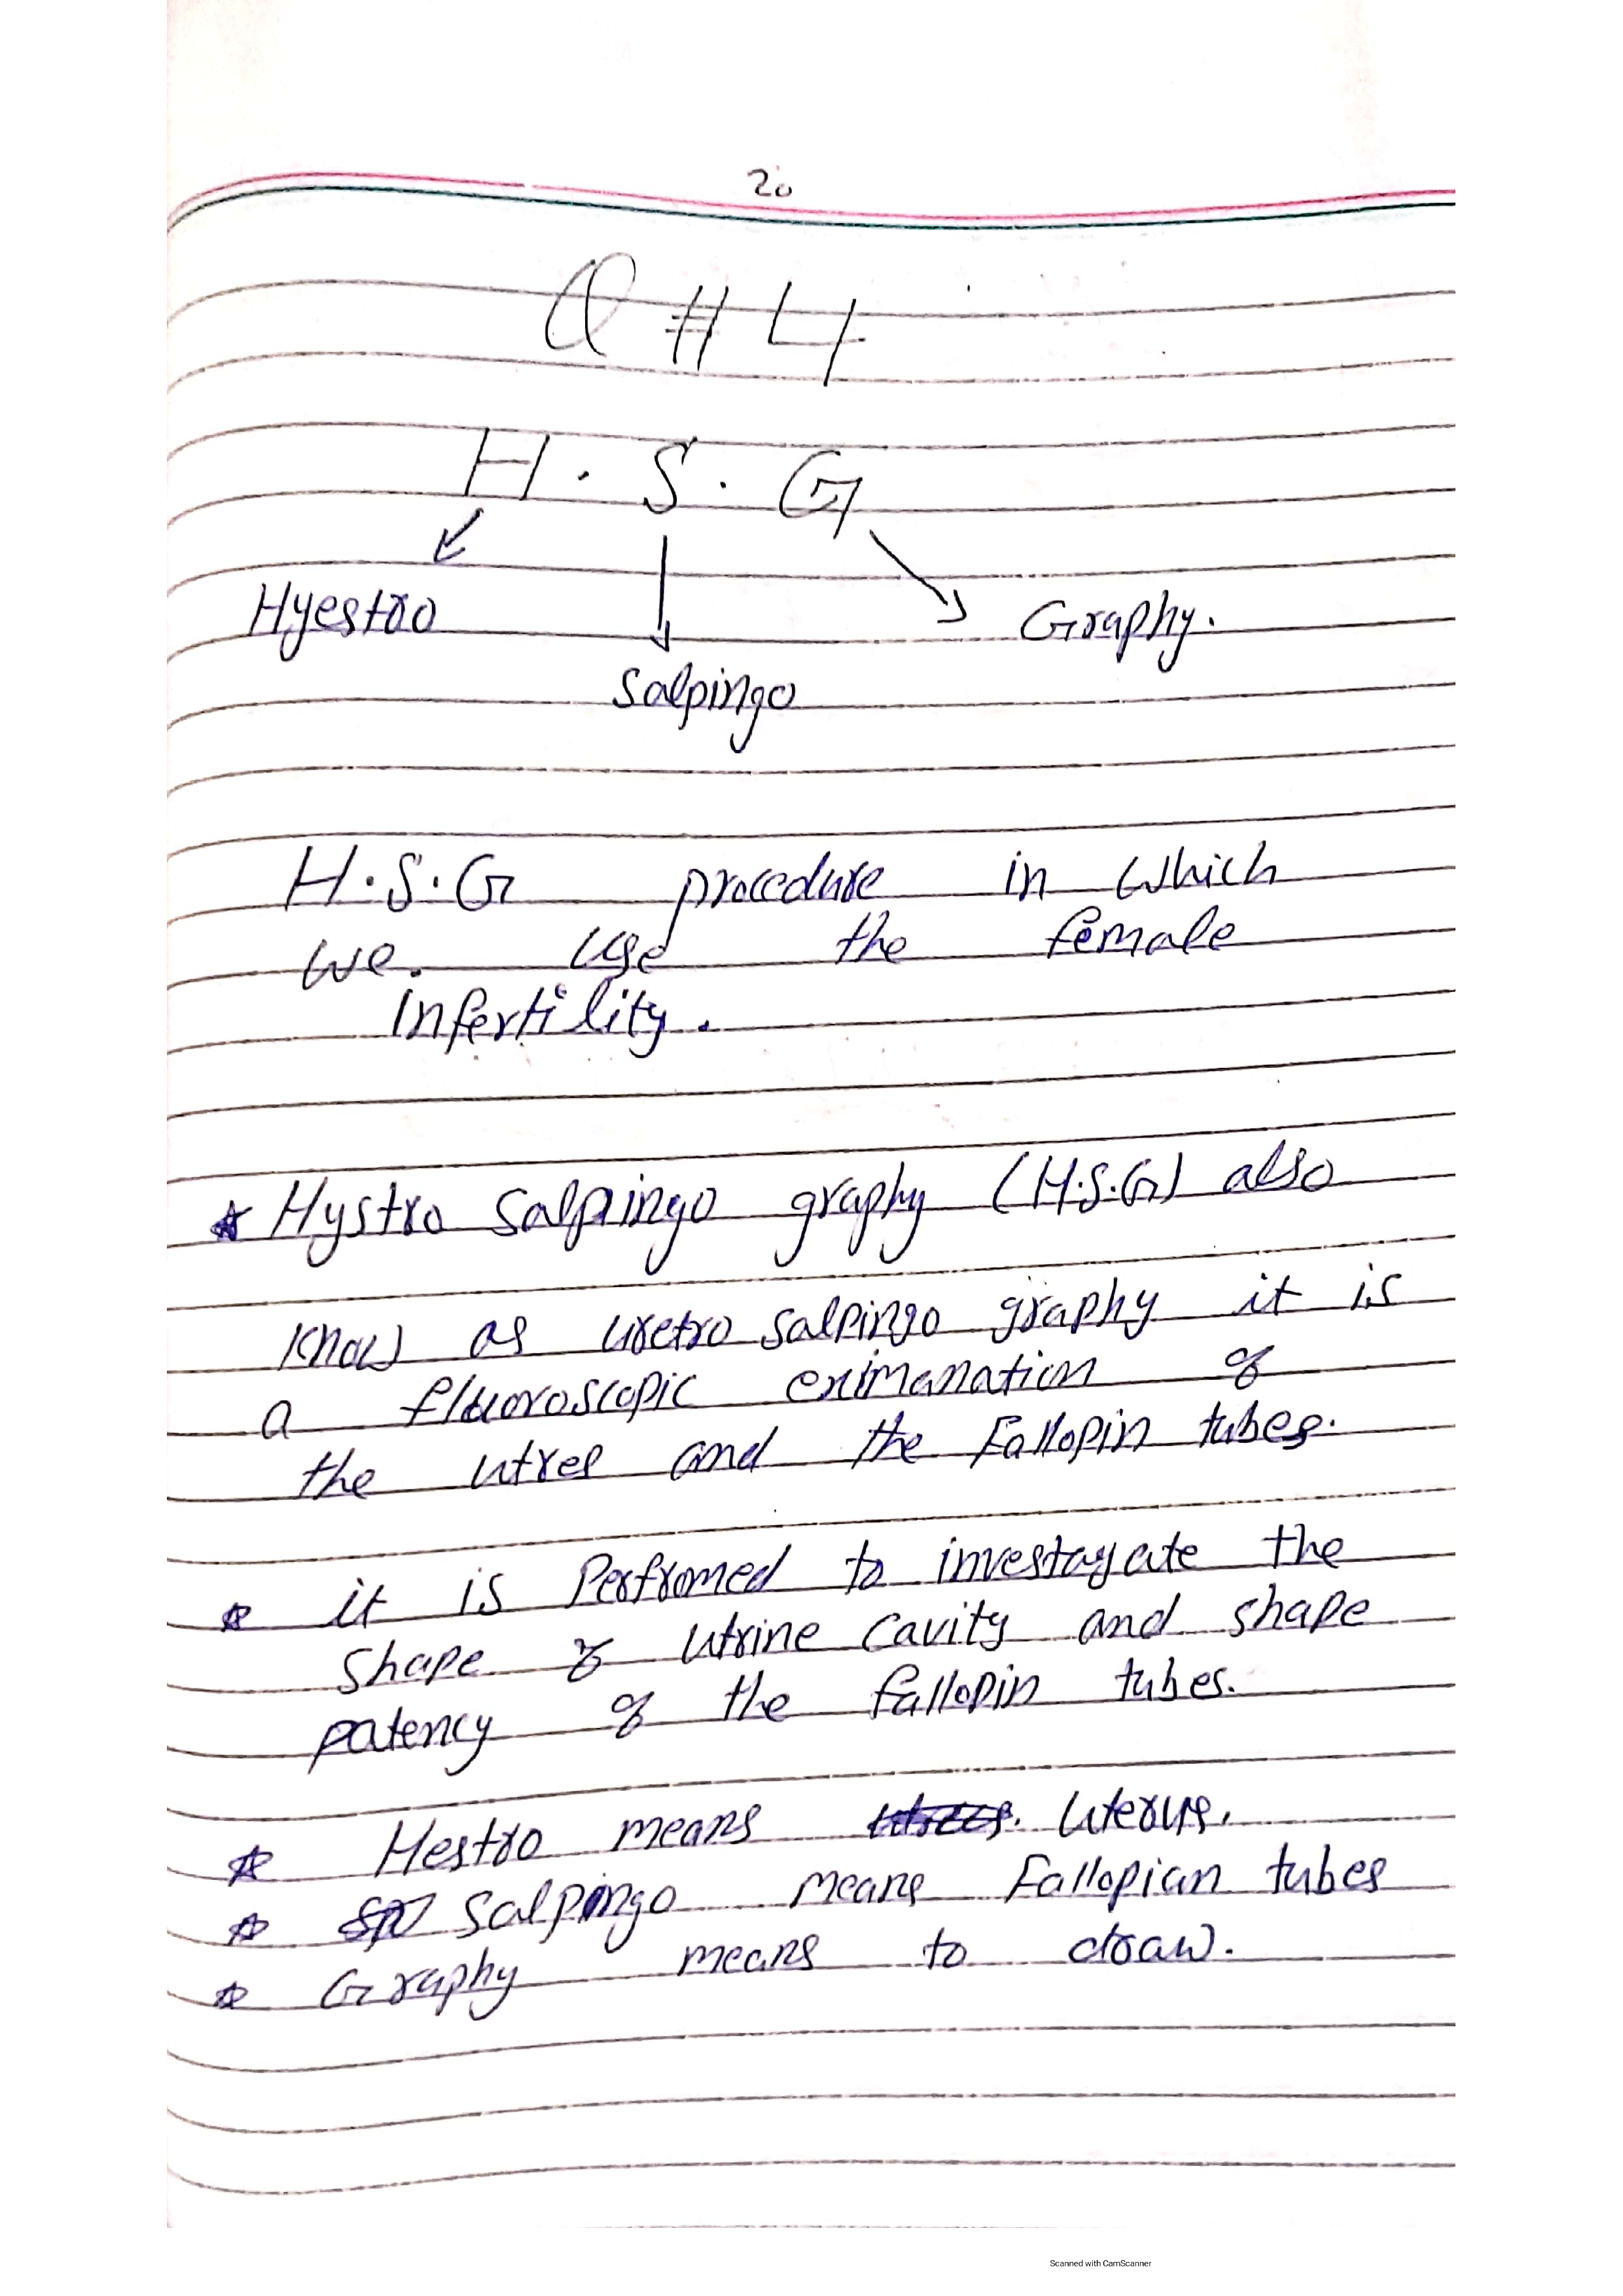 20
Q # 4
H . S . G
Hyestro
Graphy.
Salpingo
H.S.G procedure in which
we. use the female
infertility.
Hystro Salpingo graphy (H.S.G) also
know as uretro salpingo graphy it is
a fluoroscopic eximanation of
the utres and the Fallopin tubes.
it is Perfromed to investagate the
shape of utrine cavity and shape
patency of the fallopin tubes.
Hestro means uterus.
Salpingo means Fallopian tubes
Graphy means to draw.
Scanned with CamScanner